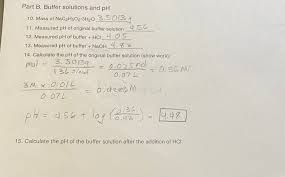 Part B. Buffer solutions and pH
10. Mass of NaC₂H₃O₂·3H₂O 3.5013g
11. Measured pH of original buffer solution 4.56
12. Measured pH of buffer + HCl 4.05
13. Measured pH of buffer + NaOH 4.8
14. Calculate the pH of the original buffer solution (show work):
mol = 3.5013g / 136 g/mol = 0.025 mol / 0.07L = 0.36M
3M × 0.01L / 0.07L =
pH = 4.56 + log (0.36 / ) = 4.48
15. Calculate the pH of the buffer solution after the addition of HCl: